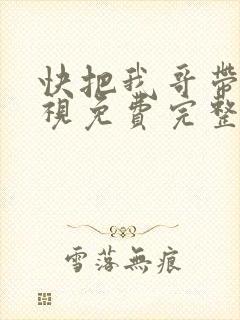 快把我哥帶
視免費完整
雪落無痕